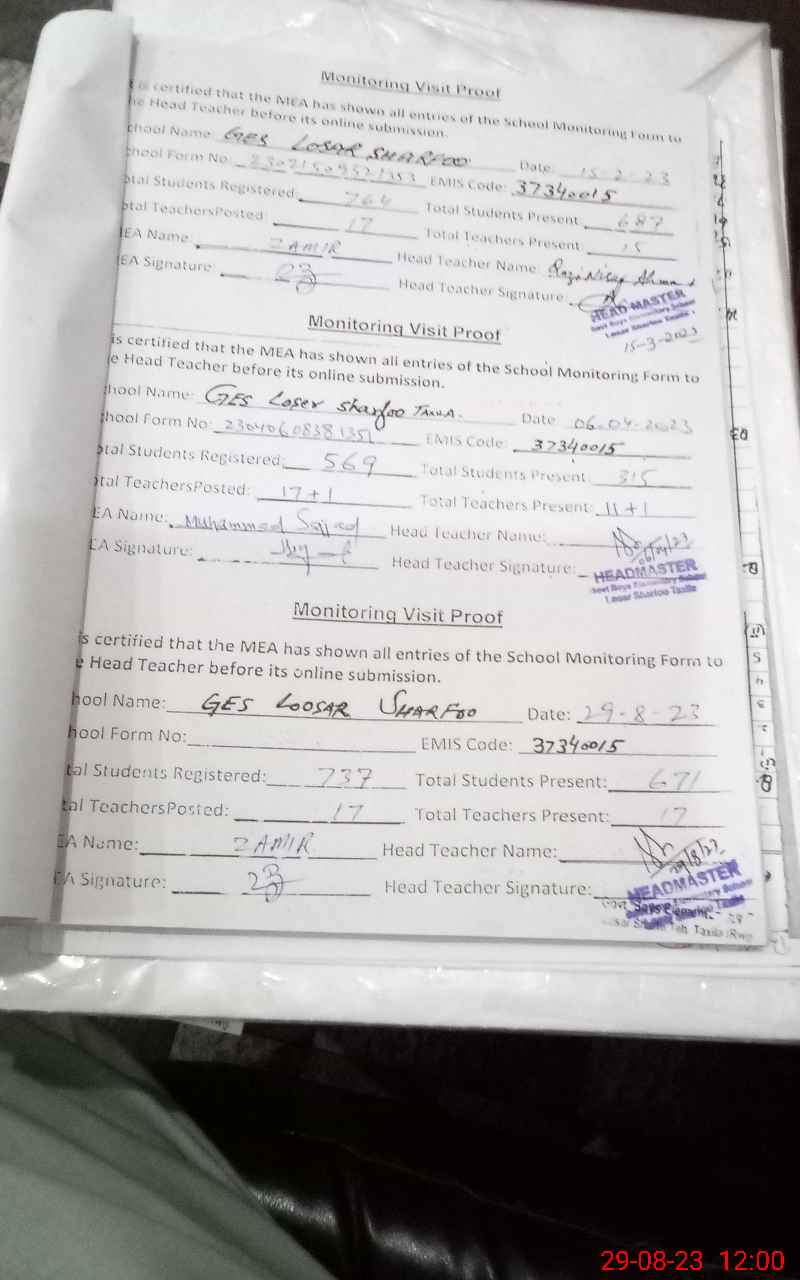 Monitoring Visit Proof
is certified that the MEA has shown all entries of the School Monitoring Form to
he Head Teacher before its online submission.
chool Name: GES LOSAR SHARFOO Date:
chool Form No: EMIS Code: 37340015
otal Students Registered: 764 Total Students Present 687
otal TeachersPosted: 17 Total Teachers Present: 15
EA Name: ZAMIR Head Teacher Name:
EA Signature Head Teacher Signature:
HEAD MASTER
Govt Boys Elementary School
Losar Sharfoo Taxila
15-3-2023
Monitoring Visit Proof
is certified that the MEA has shown all entries of the School Monitoring Form to
e Head Teacher before its online submission.
hool Name: GES Loser Sharfoo TAXILA. Date 06-04-2023
hool Form No: EMIS Code: 37340015
otal Students Registered: 569 Total Students Present: 315
otal TeachersPosted: 17+1 Total Teachers Present: 11+1
EA Name: Muhammad Sajjad Head Teacher Name:
EA Signature: Head Teacher Signature:
HEADMASTER
Govt Boys Elementary School
Losar Sharfoo Taxila
Monitoring Visit Proof
is certified that the MEA has shown all entries of the School Monitoring Form to
e Head Teacher before its online submission.
hool Name: GES LOOSAR SHARFOO Date: 29-8-23
hool Form No: EMIS Code: 37340015
tal Students Registered: 737 Total Students Present: 671
tal TeachersPosted: 17 Total Teachers Present: 17
EA Name: ZAMIR Head Teacher Name:
29/8/23
EA Signature: Head Teacher Signature:
HEADMASTER
29-08-23 12:00